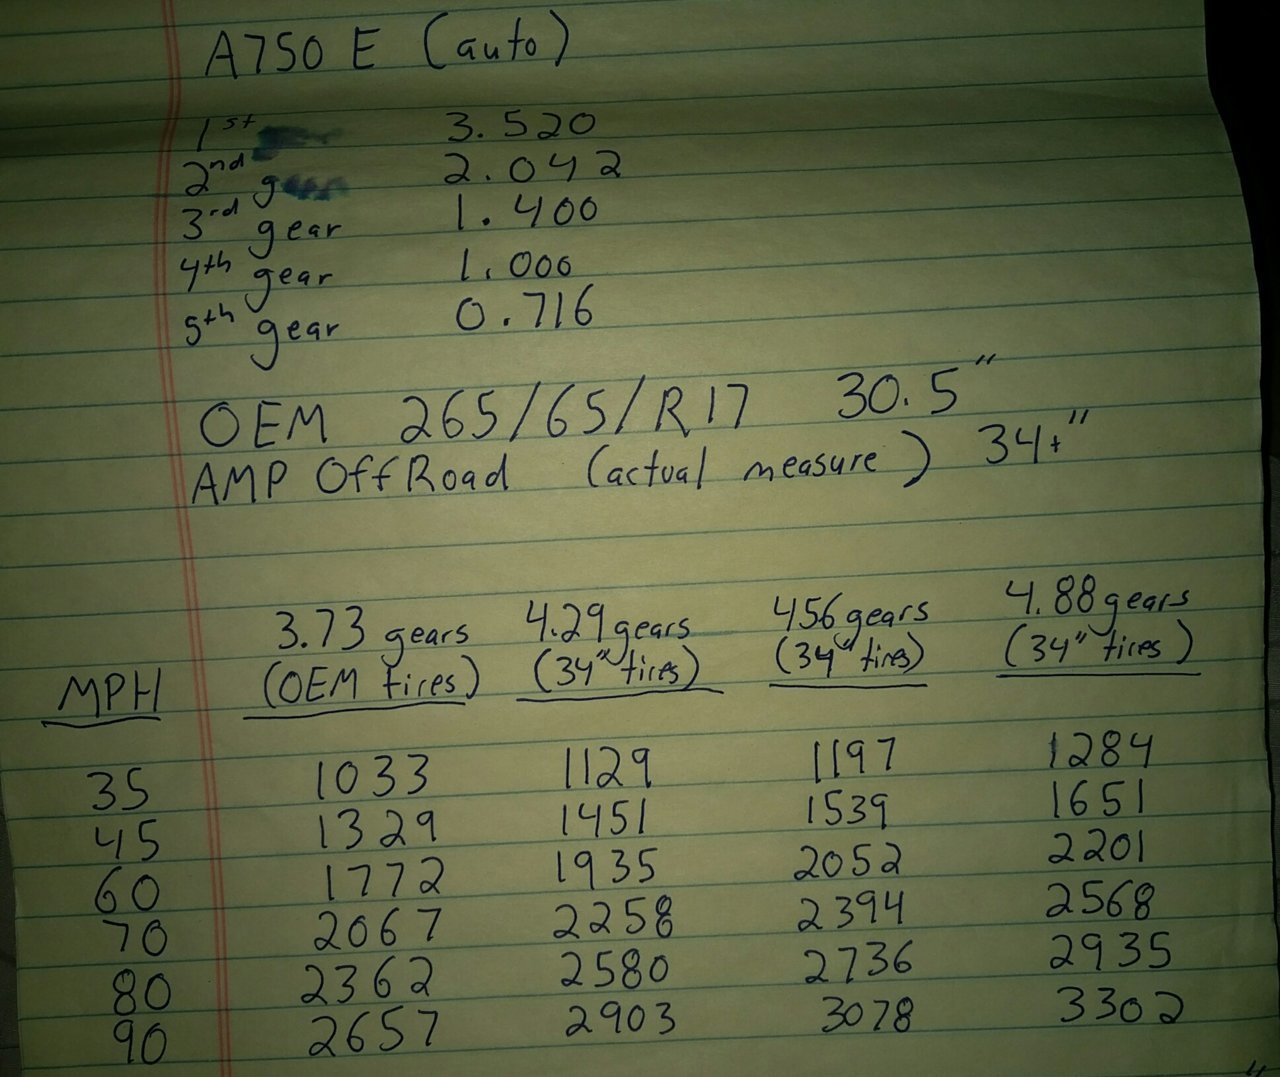 A750E (auto)
1st 3.520
2nd gear 2.042
3rd gear 1.400
4th gear 1.000
5th gear 0.716
OEM 265/65/R17 30.5"
AMP Off Road (actual measure) 34+"
3.73 gears 4.29 gears 456 gears 4.88 gears
MPH (OEM tires) (34" tires) (34" tires) (34" tires)
35 1033 1129 1197 1284
45 1329 1451 1539 1651
60 1772 1935 2052 2201
70 2067 2258 2394 2568
80 2362 2580 2736 2935
90 2657 2903 3078 3302